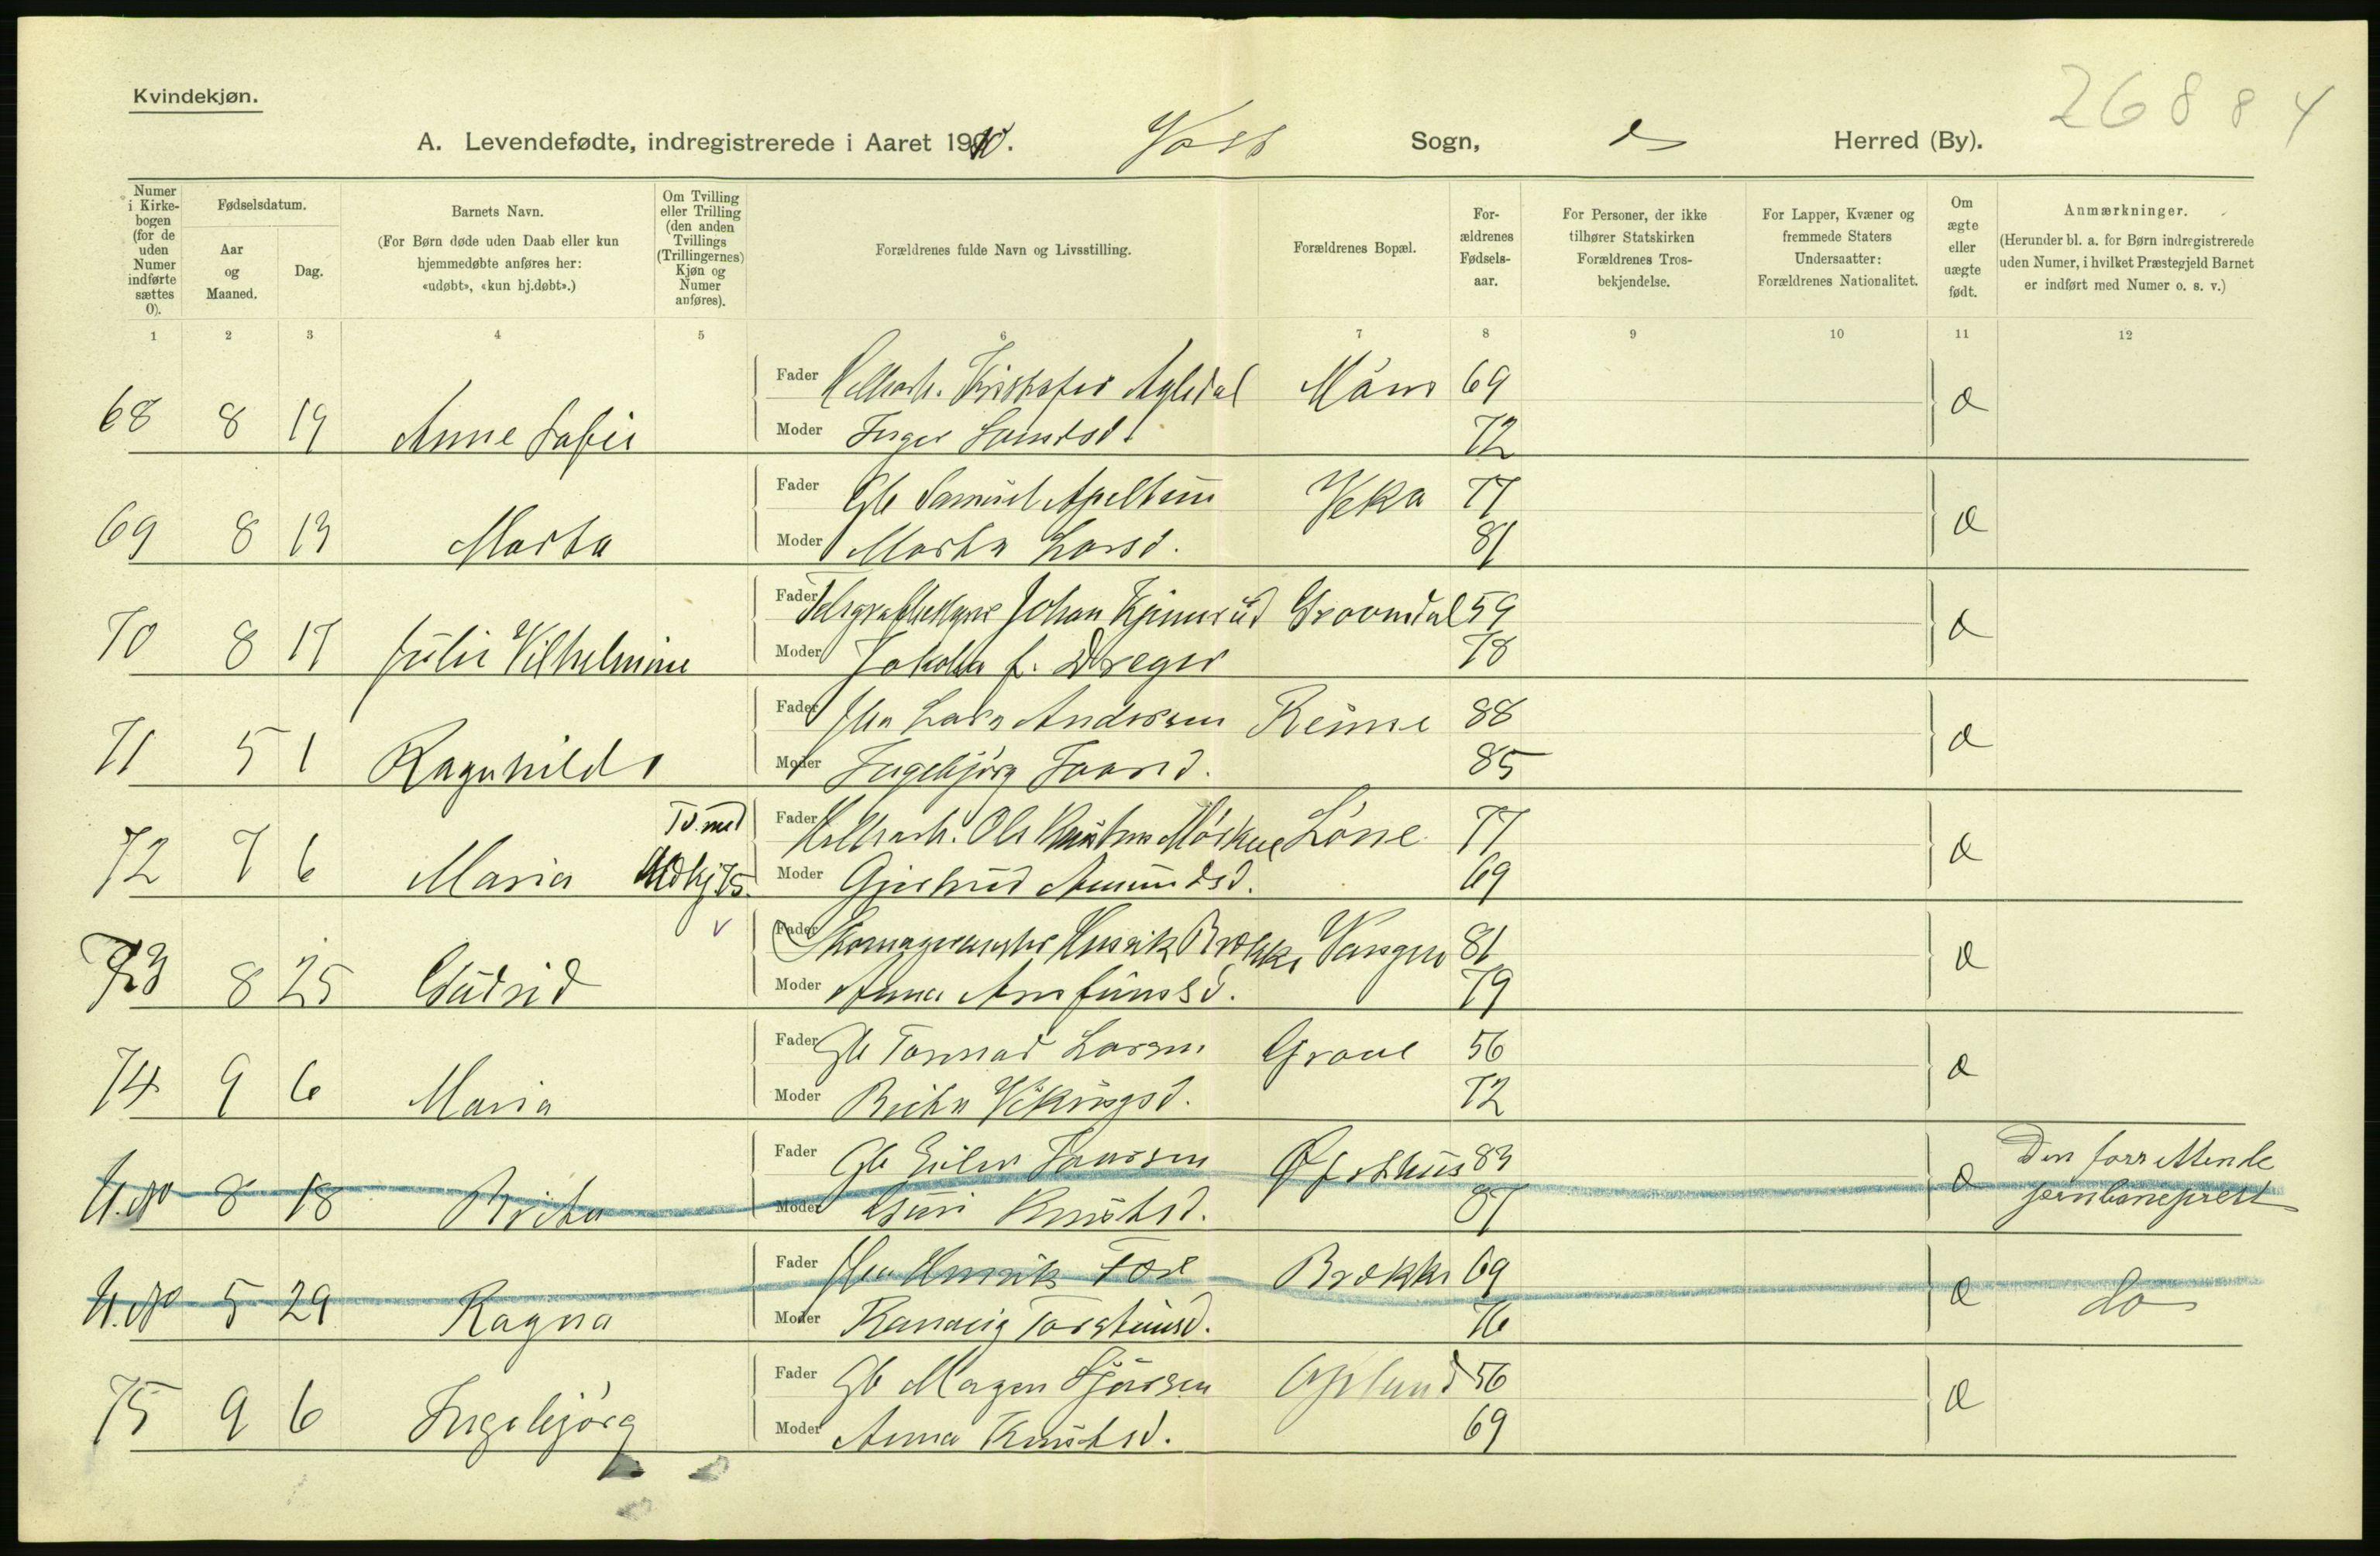 Kvindekjøn.
26884
A. Levendefødte, indregistrerede i Aaret 1910. Voss Sogn, do Herred (By).
Numer i Kirkebogen (for de uden Numer indførte sættes 0).
Fødselsdatum.
Aar og Maaned.
Dag.
Barnets Navn.
(For Børn døde uden Daab eller kun hjemmedøbte anføres her: «udøbt», «kun hj.døbt».)
Om Tvilling eller Trilling (den anden Tvillings (Trillingernes) Kjøn og Numer anføres).
Forældrenes fulde Navn og Livsstilling.
Forældrenes Bopæl.
Forældrenes Fødselsaar.
For Personer, der ikke tilhører Statskirken Forældrenes Trosbekjendelse.
For Lapper, Kvæner og fremmede Staters Undersaatter: Forældrenes Nationalitet.
Om ægte eller uægte født.
Anmærkninger.
(Herunder bl. a. for Børn indregistrerede uden Numer, i hvilket Præstegjeld Barnet er indført med Numer o. s. v.)
1 2 3 4 5 6 7 8 9 10 11 12
Fader Kristofer 69
68 8 19 Anne Sofie Moder Inger 72 æ
Fader Gb Samuel Apeltun Veka 77
69 8 13 Marta Moder Marta Larsd. 81 æ
Fader Johan 59
70 8 17 Julie Vilhelmine Moder f. Dreger 78 æ
Fader Lars Andersen Reime 88
71 5 1 Ragnhild Moder Ingebjørg 85 æ
Tv. med Fader Ola Løne 77
72 7 6 Maria 75. Moder Gjertrud Amundsd. 69 æ
Fader Henrik Brekke Vangen 81
73 8 25 Gudrid Moder Anna Arnfinnsd. 79 æ
Fader Gb Larsen Graue 56
74 9 6 Maria Moder Brita Vikingsd. 72 æ
Fader Gb Eilev 83 Den forrettende
U. No 8 18 Brita Moder Guri Knutsd. 87 æ jernbaneprest
Fader Henrik Brekke 69
U. No 5 29 Ragna Moder Rannveig Torsteinsd. 76 æ do
Fader Gb Magne 56
75 9 6 Ingebjørg Moder Anna Knutsd. 69 æ